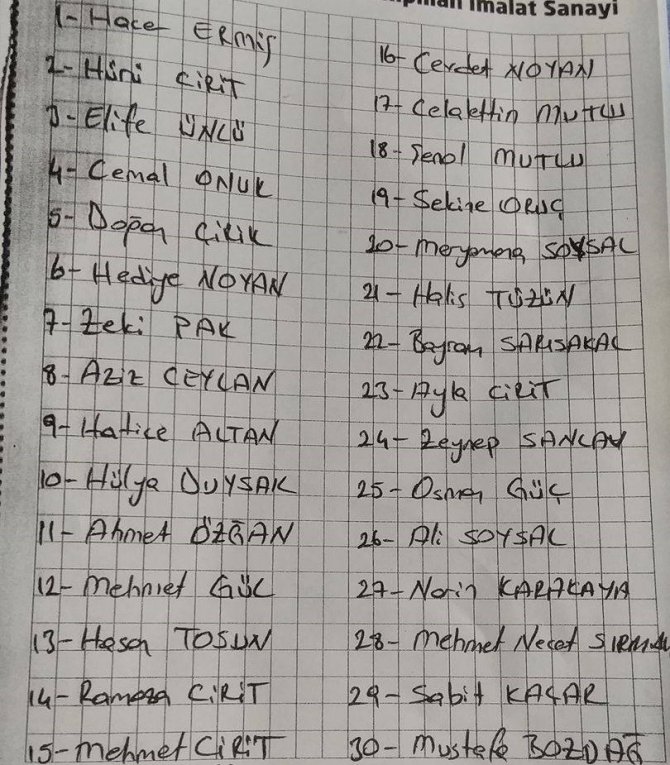 İmalat Sanayi
1- Hacer ERMİŞ
2- Hüsni CİRİT
3- Elife ÜNLÜ
4- Cemal ONUK
5- Doğan Çilik
6- Hediye NOYAN
7- Zeki PAK
8- Aziz CEYLAN
9- Hatice ALTAN
10- Hülya DUYSAK
11- Ahmet ÖZĞAN
12- Mehmet GÜÇ
13- Hasan TOSUN
14- Ramazan CİRİT
15- Mehmet CİRİT
16- Cevdet NOYAN
17- Celalettin MUTLU
18- Şenol MUTLU
19- Sekine ORUÇ
20- Meryemana SOYSAL
21- Halis TÜZÜN
22- Bayram SARISAKAL
23- Ayla CİRİT
24- Zeynep SANCAY
25- Osman GÜÇ
26- Ali SOYSAL
27- Narin KARAKAYA
28- Mehmet Necet
29- Sabit KAÇAR
30- Mustafa BOZDAĞ